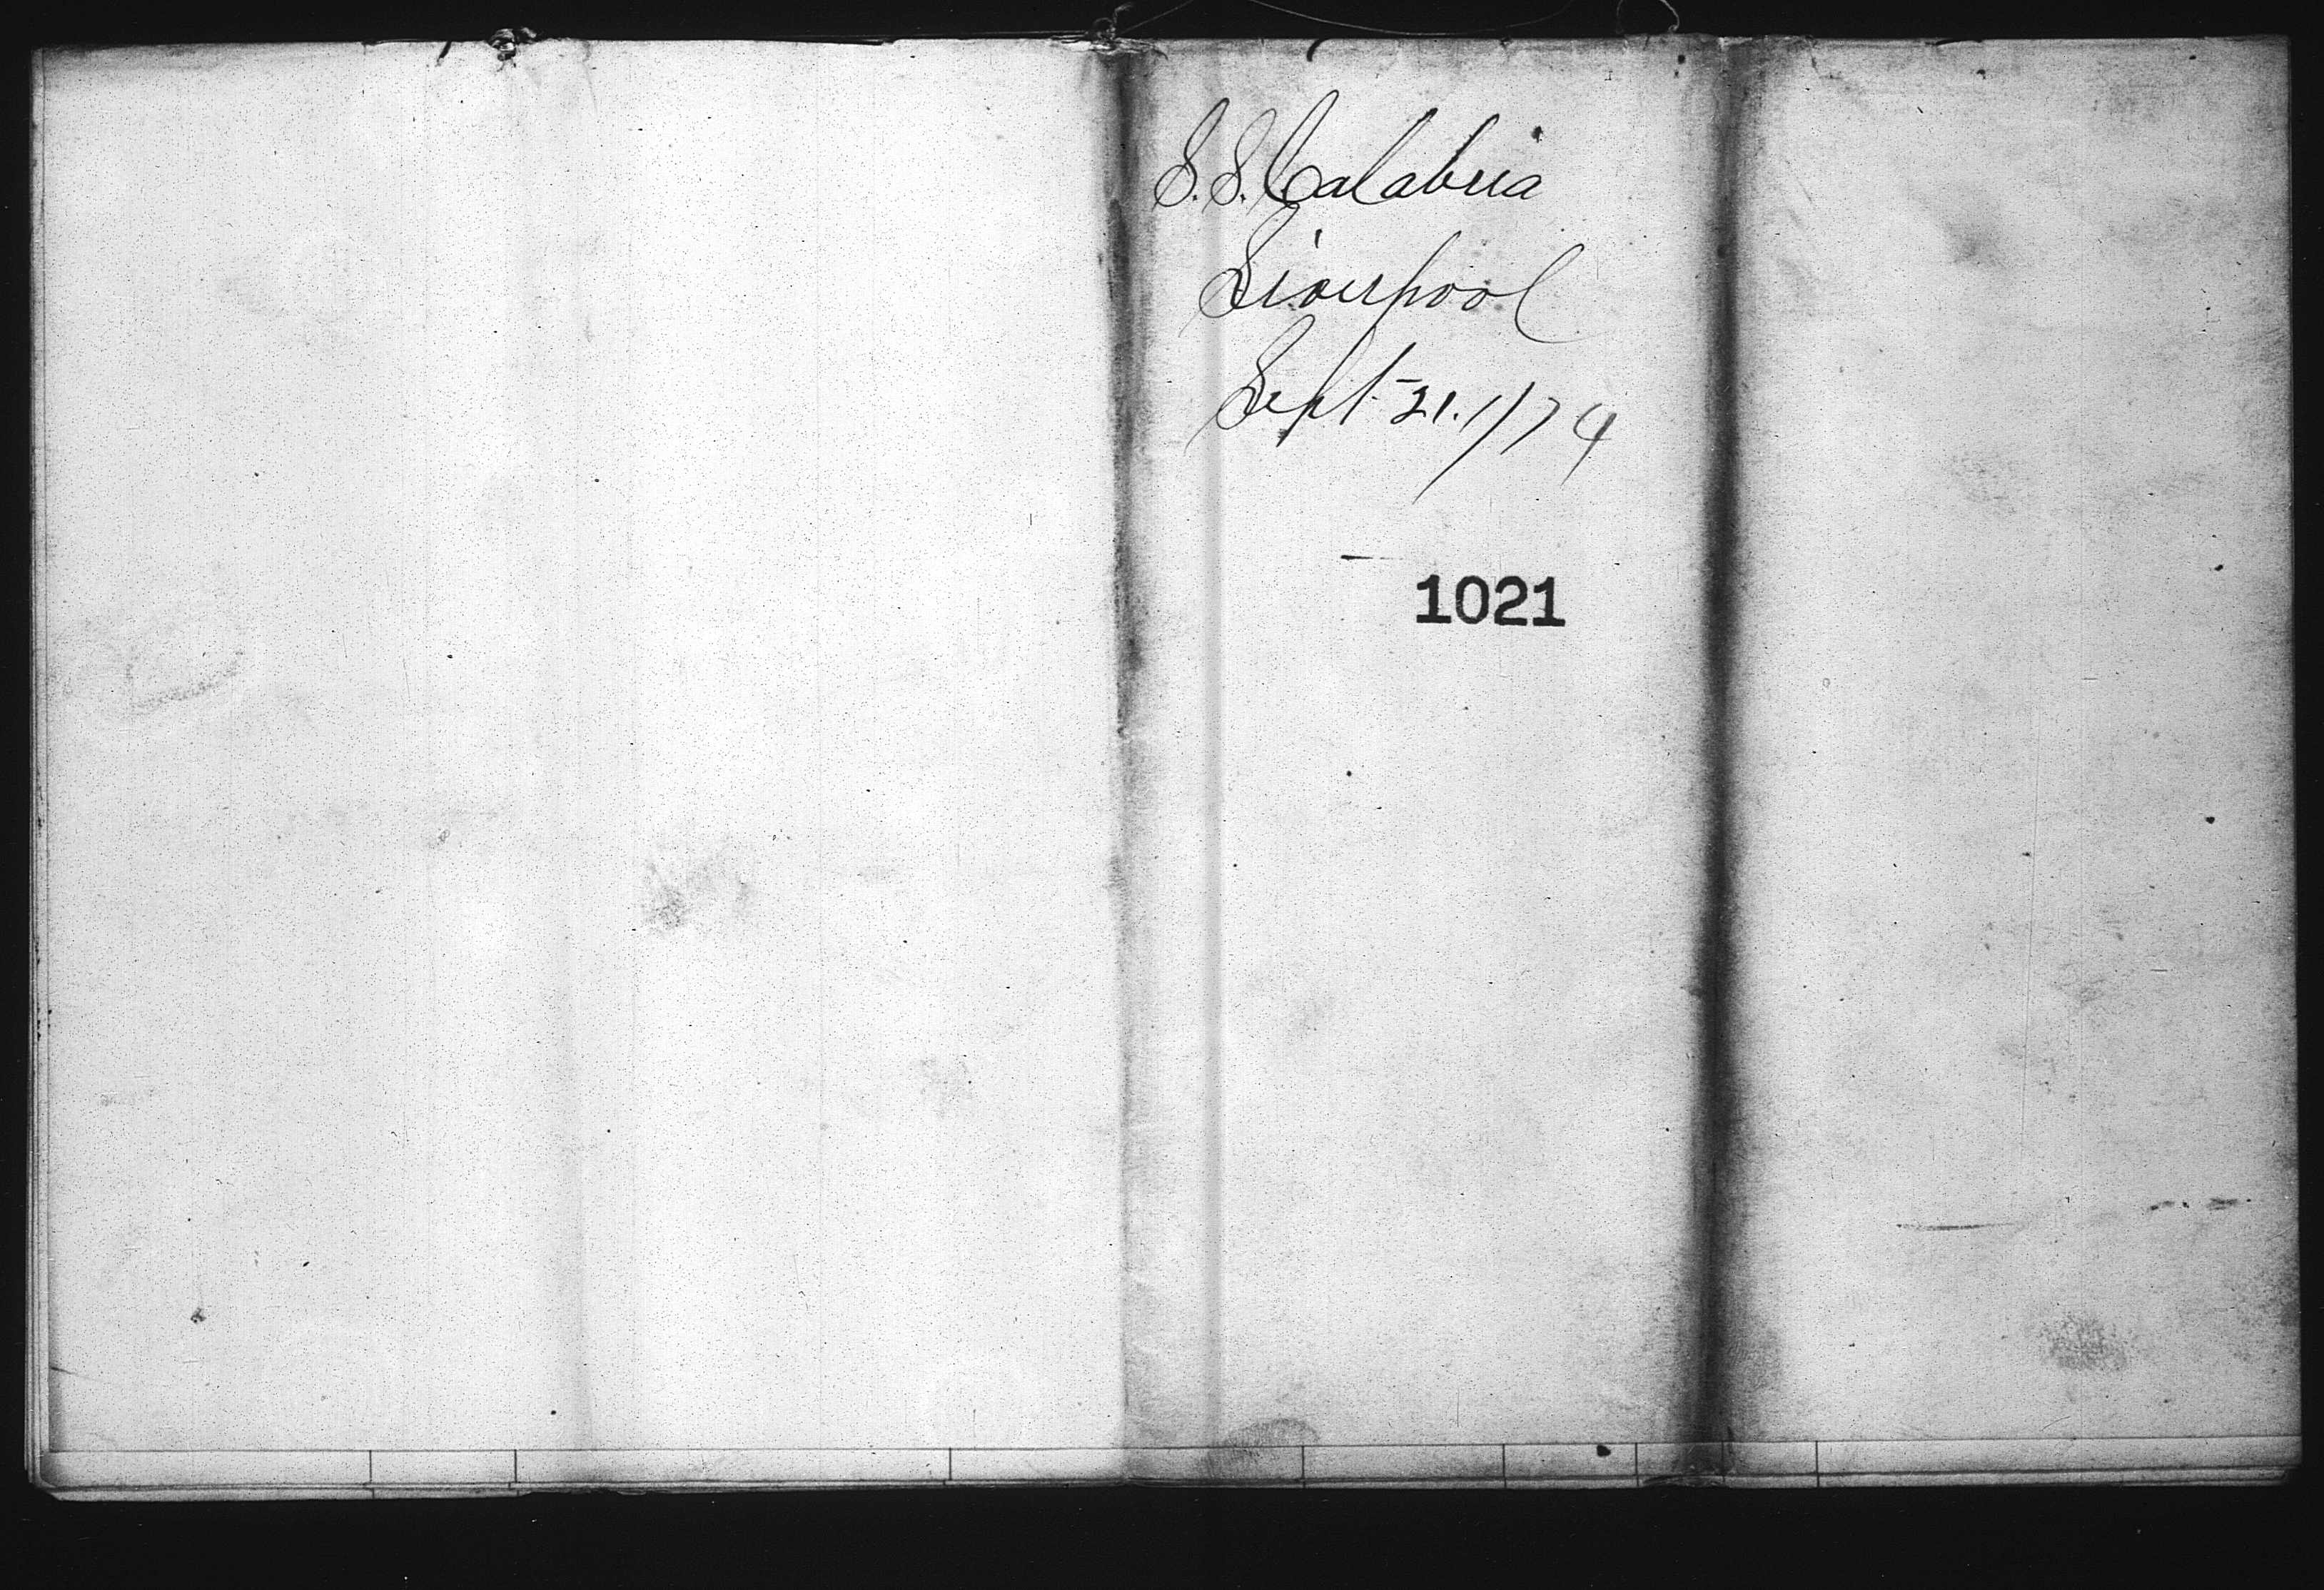 S.S. Calabria
Liverpool
Sept 21./74
1021